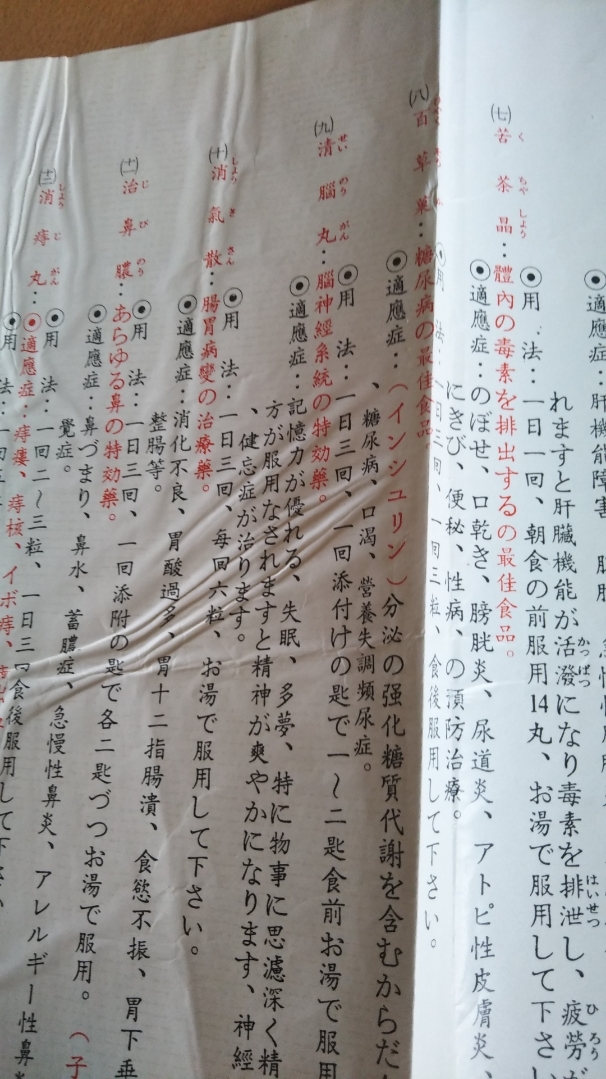 ◉適應症：肝機能障害
れますと肝臓機能が活潑になり毒素を排泄し、疲勞が
㈦苦茶晶：體內の毒素を排出するの最佳食品。
◉用　法：一日一回、朝食の前服用14丸、お湯で服用して下さい
◉適應症：のぼせ、口乾き、膀胱炎、尿道炎、アトピ性皮膚炎、
にきび、便秘、性病、の預防治療。
㈧百草藥：糖尿病の最佳食品
◉用　法：一日三回、一回三粒、食後服用して下さい。
◉適應症：（インシュリン）分泌の强化糖質代謝を含むからだ
、糖尿病、口渴、營養失調頻尿症。
㈨清腦丸：腦神經系統の特効藥。
◉用　法：一日三回、一回添付けの匙で一～二匙食前お湯で服用
◉適應症：記憶力が優れる、失眠、多夢、特に物事に思濾深く精
方が服用なされますと精神が爽やかになります、神經
、健忘症が治ります。
㈩消氣散：腸胃病變の治療藥。
◉用　法：一日三回、每回六粒、お湯で服用して下さい。
◉適應症：消化不良、胃酸過多、胃十二指腸潰、食慾不振、胃下垂
整腸等。
(十一)治鼻膿：あらゆる鼻の特効藥。
◉用　法：一日三回、一回添附の匙で各二匙づつお湯で服用。（子
◉適應症：鼻づまり、鼻水、蓄膿症、急慢性鼻炎、アレルギー性鼻
覺症。
(十二)消痔丸：◉適應症：痔瘻、痔核、イボ痔、
◉用　法：一回二～三粒、一日三回食後服用して下さい